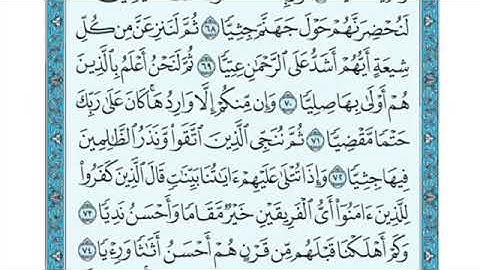 لَنُحْضِرَنَّهُمْ حَوْلَ جَهَنَّمَ جِثِيًّا ٦٨ ثُمَّ لَنَنزِعَنَّ مِن كُلِّ
شِيعَةٍ أَيُّهُمْ أَشَدُّ عَلَى ٱلرَّحْمَٰنِ عِتِيًّا ٦٩ ثُمَّ لَنَحْنُ أَعْلَمُ بِٱلَّذِينَ
هُمْ أَوْلَىٰ بِهَا صِلِيًّا ٧٠ وَإِن مِّنكُمْ إِلَّا وَارِدُهَا ۚ كَانَ عَلَىٰ رَبِّكَ
حَتْمًا مَّقْضِيًّا ٧١ ثُمَّ نُنَجِّي ٱلَّذِينَ ٱتَّقَوا۟ وَّنَذَرُ ٱلظَّٰلِمِينَ
فِيهَا جِثِيًّا ٧٢ وَإِذَا تُتْلَىٰ عَلَيْهِمْ ءَايَٰتُنَا بَيِّنَٰتٍ قَالَ ٱلَّذِينَ كَفَرُوا۟
لِلَّذِينَ ءَامَنُوٓا۟ أَيُّ ٱلْفَرِيقَيْنِ خَيْرٌ مَّقَامًا وَأَحْسَنُ نَدِيًّا ٧٣
وَكَمْ أَهْلَكْنَا قَبْلَهُم مِّن قَرْنٍ هُمْ أَحْسَنُ أَثَٰثًا وَرِءْيًا ٧٤